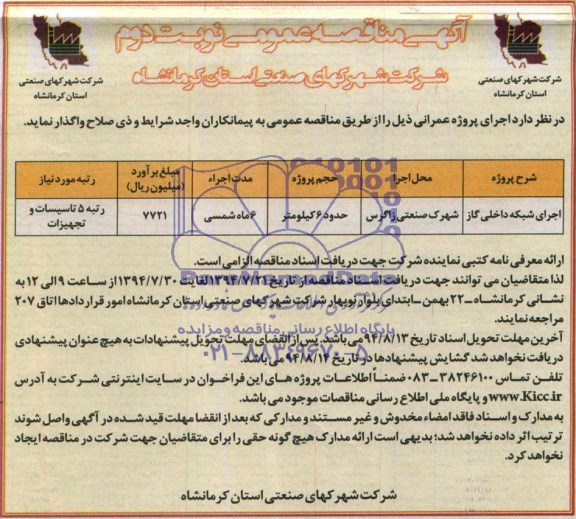 آگهی مناقصه عمومی نوبت دوم
شرکت شهرکهای صنعتی استان کرمانشاه
شرکت شهرکهای صنعتی
استان کرمانشاه
شرکت شهرکهای صنعتی
استان کرمانشاه
در نظر دارد اجرای پروژه عمرانی ذیل را از طریق مناقصه عمومی به پیمانکاران واجد شرایط و ذی صلاح واگذار نماید.
شرح پروژه محل اجرا حجم پروژه مدت اجراء مبلغ برآورد (میلیون ریال) رتبه مورد نیاز
اجرای شبکه داخلی گاز شهرک صنعتی زاگرس حدود ۶ کیلومتر ۶ ماه شمسی ۷۷۲۱ رتبه ۵ تاسیسات و تجهیزات
ارائه معرفی نامه کتبی نماینده شرکت جهت دریافت اسناد مناقصه الزامی است.
لذا متقاضیان می توانند جهت دریافت اسناد مناقصه از تاریخ ۱۳۹۴/۷/۲۱ لغایت ۱۳۹۴/۷/۳۰ از ساعت ۹ الی ۱۲ به
نشانی کرمانشاه_۲۲ بهمن_ابتدای بلوار نوبهار شرکت شهرکهای صنعتی استان کرمانشاه امور قراردادها اتاق ۲۰۷
مراجعه نمایند.
آخرین مهلت تحویل اسناد تاریخ ۹۴/۸/۱۳ می باشد. پس از انقضای مهلت تحویل پیشنهادات به هیچ عنوان پیشنهادی
دریافت نخواهد شد گشایش پیشنهادها در تاریخ ۹۴/۸/۱۴ می باشد.
تلفن تماس ۳۸۲۴۶۱۰۰_۰۸۳ ضمناً اطلاعات پروژه های این فراخوان در سایت اینترنتی شرکت به آدرس
www.Kicc.ir و پایگاه ملی اطلاع رسانی مناقصات موجود می باشد.
به مدارک و اسناد فاقد امضاء مخدوش و غیر مستند و مدارکی که بعد از انقضا مهلت قید شده در آگهی واصل شوند
ترتیب اثر داده نخواهد شد؛ بدیهی است ارائه مدارک هیچ گونه حقی را برای متقاضیان جهت شرکت در مناقصه ایجاد
نخواهد کرد.
شرکت شهرکهای صنعتی استان کرمانشاه
پایگاه اطلاع رسانی مناقصه و مزایده
۰۲۱-۸۸۳۴۹۶۷۰-۵